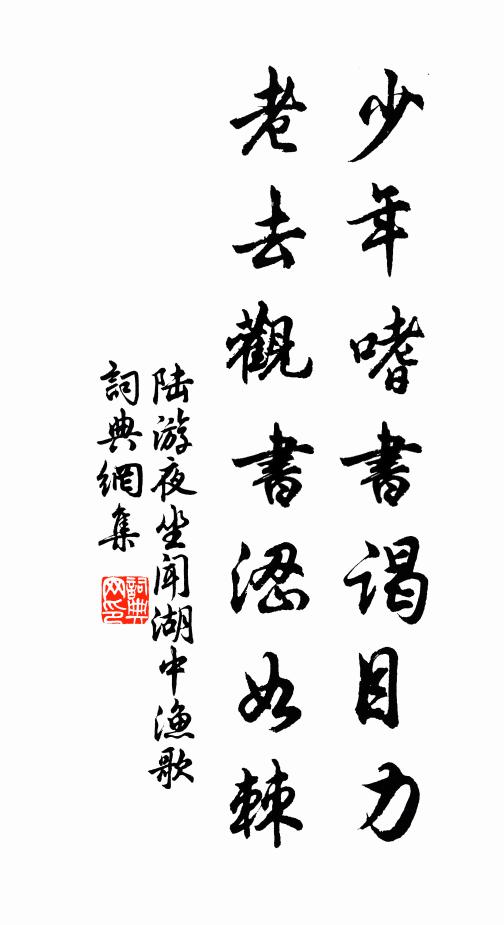 少年嗜書谒目力
老去觀書澀如棘
陆游夜坐闻湖中渔歌
詞典網集
詞典网印